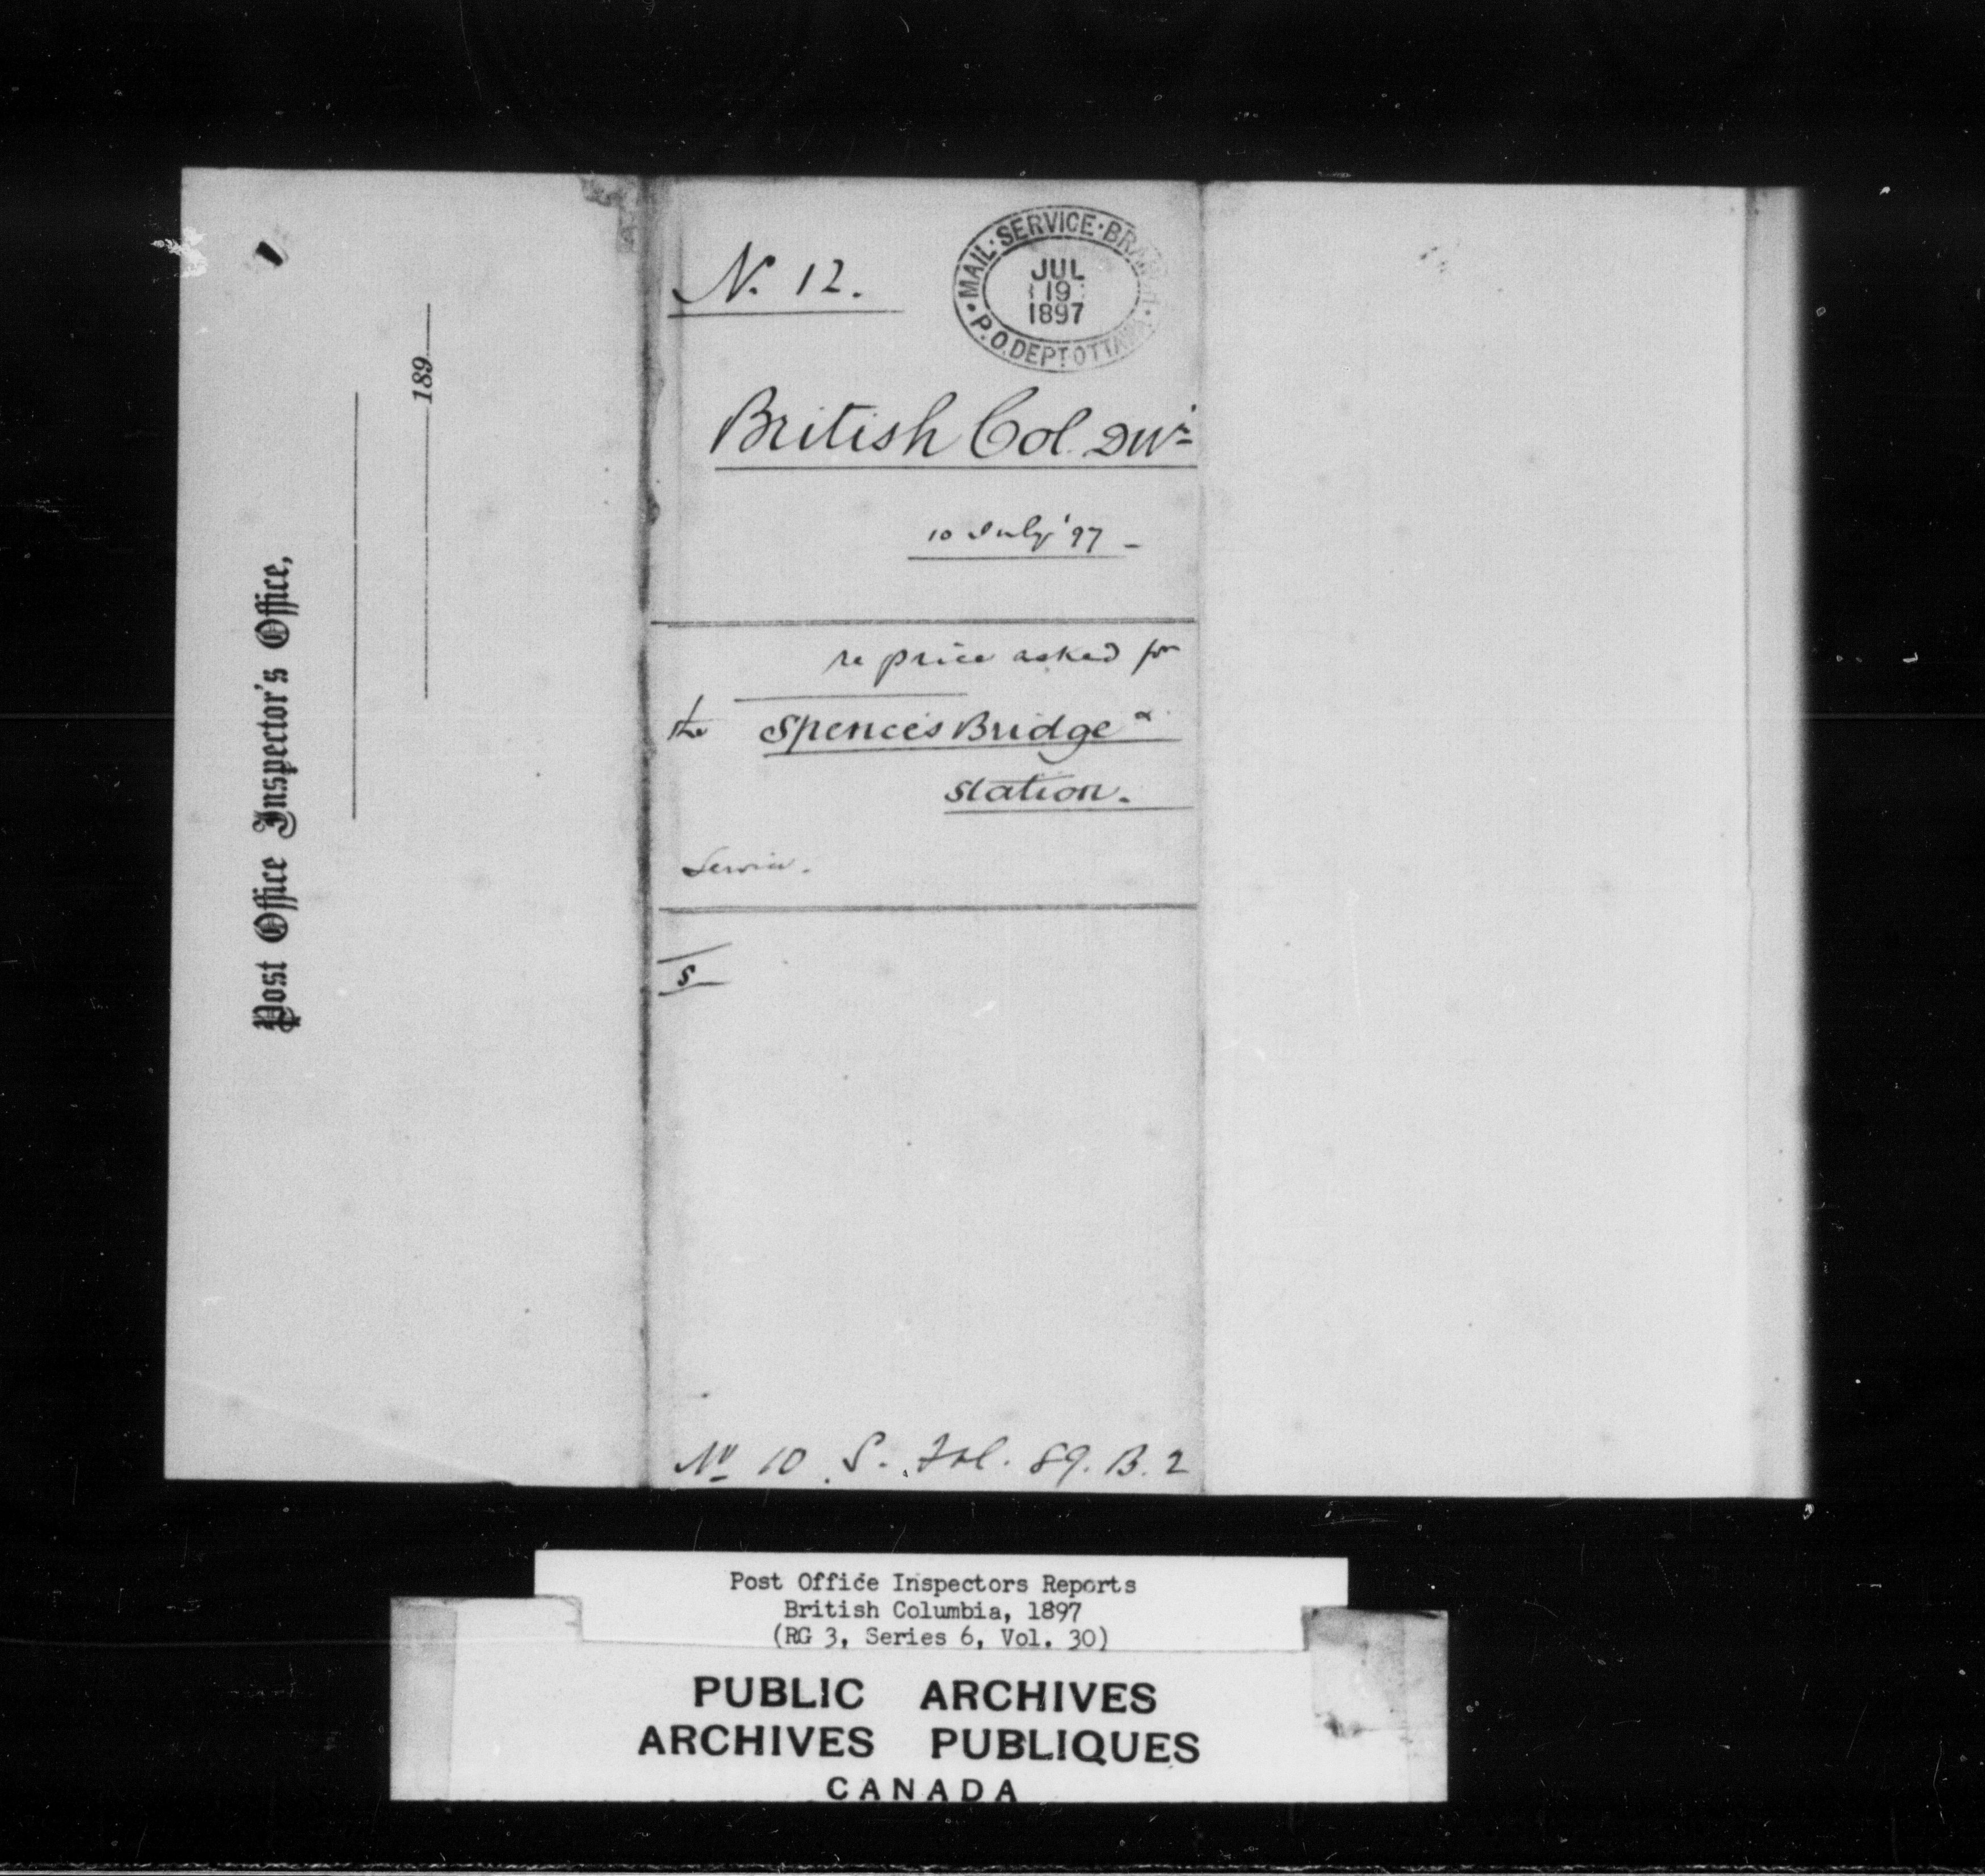 Post Office Inspector's Office,
189
N. 12.
MAIL·SERVICE·BRANCH·
JUL
19
1897
P.O.DEPT·OTTAWA
British Col. Div'n
10 July '97 -
re price asked for
the Spence's Bridge &
Station.
Service.
S
No 10 S. Fol. 89. B. 2
Post Office Inspectors Reports
British Columbia, 1897
(RG 3, Series 6, Vol. 30)
PUBLIC ARCHIVES
ARCHIVES PUBLIQUES
CANADA